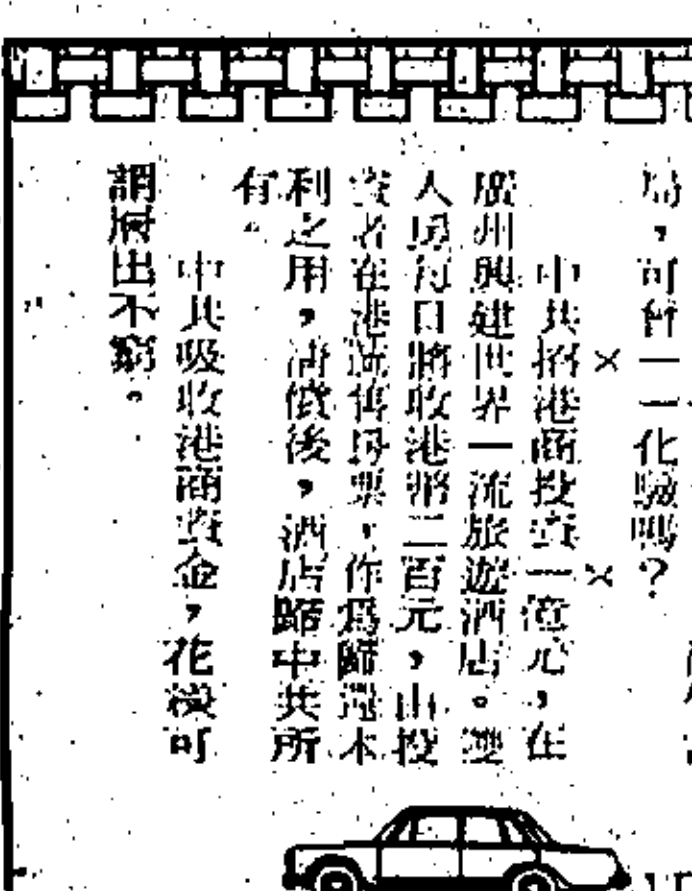 局,可會一一化驗嗎?
× ×
中共招港商投資一億元,在
廣州興建世界一流旅遊酒店。雙
人房每日將收港幣二百元,由投
資者在港預售房票,作爲歸還本
利之用,清償後,酒店歸中共所
有。
中共吸收港商資金,花樣可
謂層出不窮。